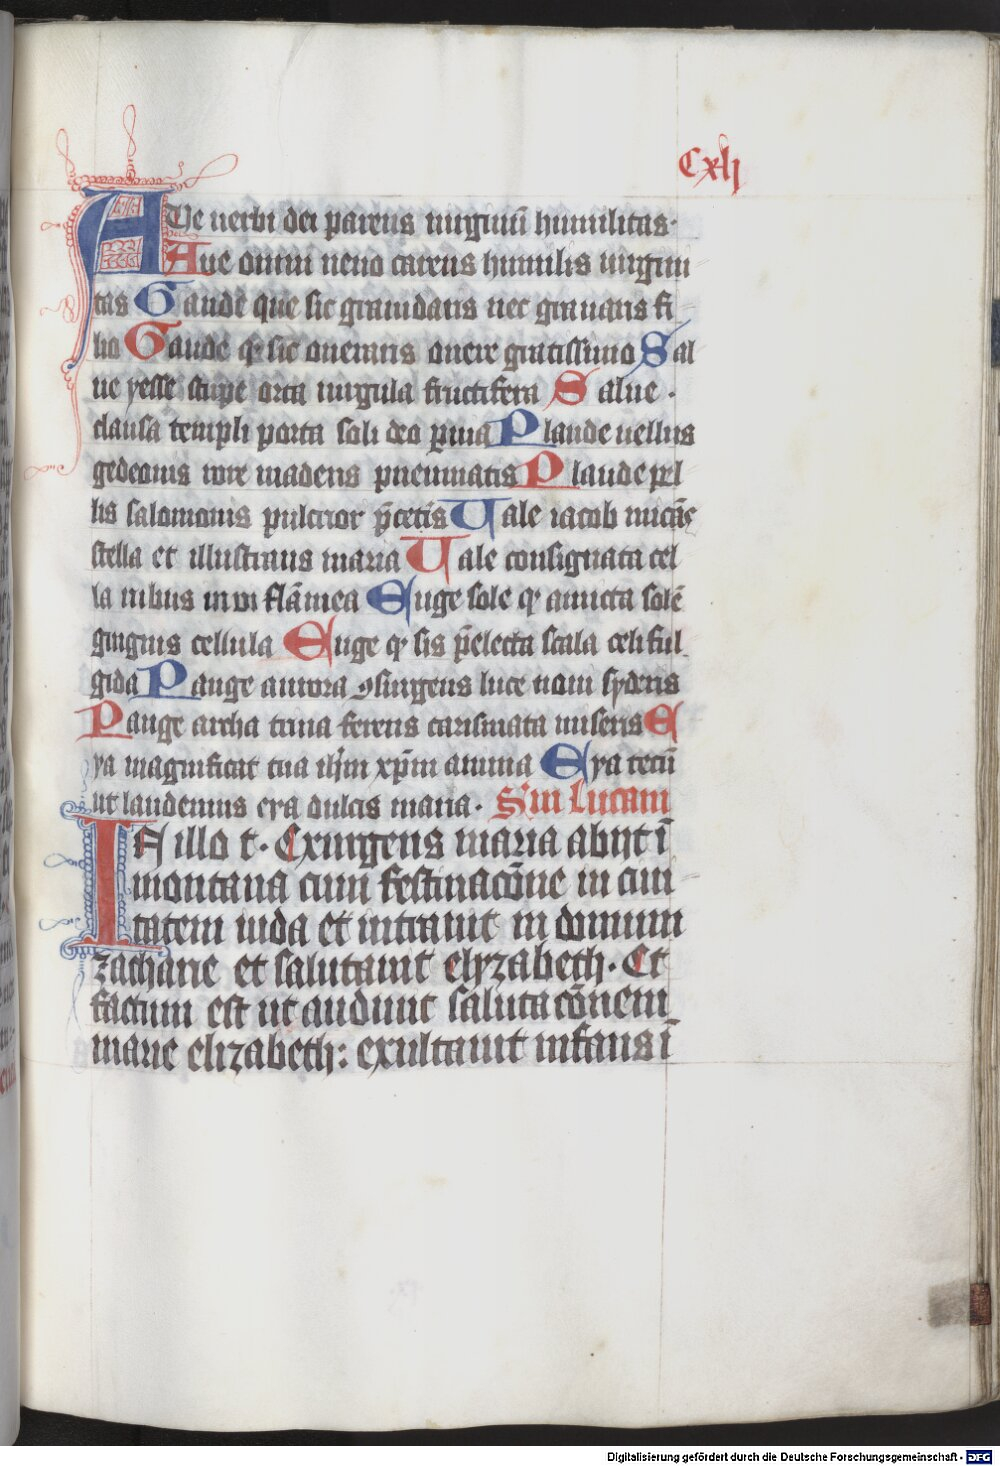 Cxlj
AVe uerbi dei parens uirginū humilitas·
Aue omni neuo carens humilis uirgini
tas Gaude que sic grauidaris nec grauaris fi
lio Gaude q̄ sic oneraris onere gratissimo Sal
ue yesse stirpe orta uirgula fructifera Salue·
clausa templi porta soli deo p̄uia Plaude uellus
gedeonis rore madens pneumatis Plaude pel
lis salomonis pulcrior p̄ceteris Uale iacob
stella et illustrans maria Uale consignata cel
la nibus in flāmea Euge sole q̄ amicta solē
gingnis cellula Euge q̄ sis p̄electa scala celi ful
gida Pange aurora ꝯsurgens luce noui syderis
Pange archa trina ferens carismata miseris E
ya magnificat tua ihm̄ xp̄m anima Eya tecū
ut laudemus eya dulcis maria· S'm Lucam
IN illo t· Exurgens maria abijt ī
montana cum festinacōne in ciui
tatem iuda et intrauit in domum
zacharie et salutauit elyzabeth· Et
factum est ut audiuit salutacōnem
marie elizabeth: exultauit infans ī
Digitalisierung gefördert durch die Deutsche Forschungsgemeinschaft - DFG